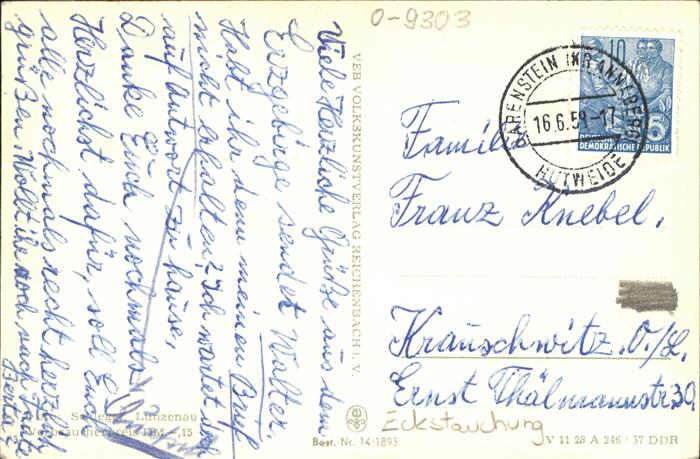 Viele herzliche Grüße aus dem
Erzgebirge sendet Walter
Habt ihr denn meinen Brief
nicht erhalten? Ich wartet noch
auf Antwort zu hause,
Danke Euch nochmals
Herzlichst dafür, soll Euch
alle nochmals recht herzlich
grüßen, Wollt ihr noch nach
VEB VOLKSKUNSTVERLAG REICHENBACH i. V.
0-9303
10
DEUTSCHE
DEMOKRATISCHE REPUBLIK
BÄRENSTEIN (KR ANNABERG)
16.6.58-17
HUTWEIDE
Familie
Franz Knebel,
Krauschwitz. O./L.
Ernst Thälmannstr 30,
Eckstauchung
Lunzenau
Verbraucherpreis DM -,15
Best.-Nr. 14/1895
V 11 28 A 246 / 57 DDR